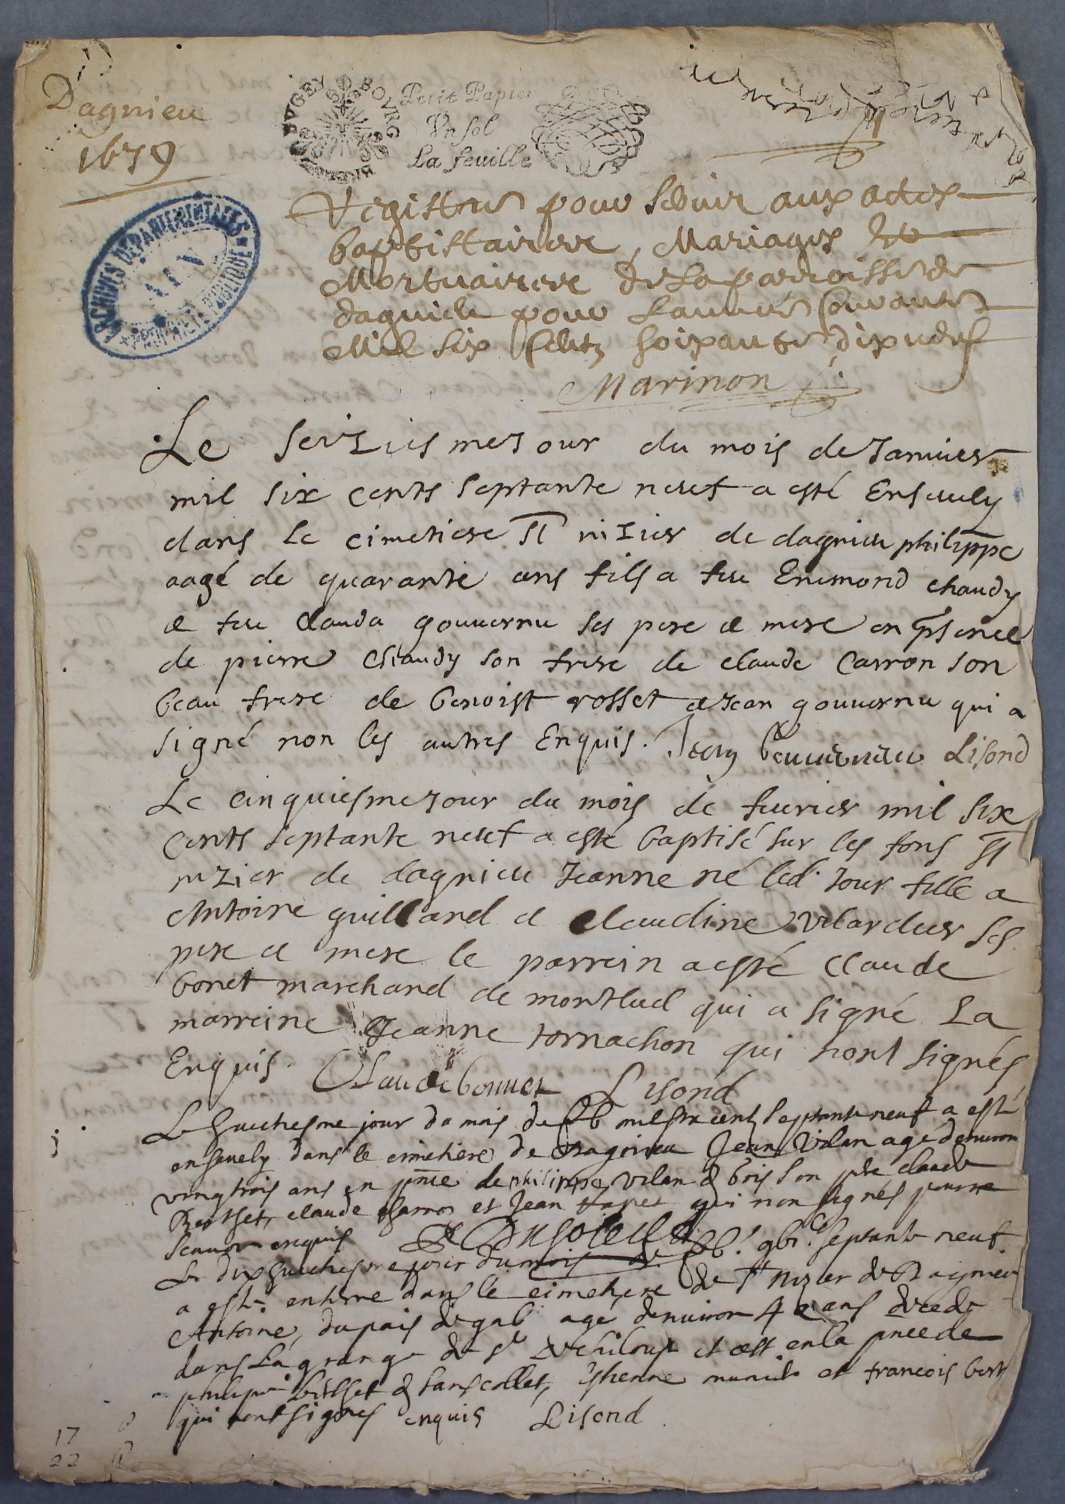 Dagnieu
1679
BVGEY BOVRG
Petit Papier
Vn sol
La feuille
ARCHIVES DÉPARTEMENTALES
AIN
Registre pour seruir aux actes
baptistaires, Mariages &
Mortuaires de la parroisse de
dagnieu pour l'année courante
Mil six cents soixante dixneuf
Marinon
Le seiziesme jour du mois de januier
mil six cents septante neuf a esté enseuely
dans le cimetiere St nizier de dagnieu philippe
aagé de quarante ans fils a feu Enemond chaudy
et feu clauda gouuernu ses pere et mere en psence
de pierre chaudy son frere de claude carron son
beau frere de benoist rosset et Jean gouuernu qui a
signé non les autres Enquis. Jean Gouuernu Lisond
Le cinquiesme jour du mois de feurier mil six
cents septante neuf a esté baptisé sur les fons St
nizier de dagnieu Jeanne né led. jour fille a
Antoine guilland et claudine vilardier ses
pere et mere le parrein a esté claude
bonet marchand de montluel qui a signé La
marreine Jeanne tornachon qui n'ont signés
Enquis. Claude bonnet Lisond
Le huictiesme jour du mois de feb mil six cent septante neuf a esté
enseuely dans le cimetiere de Dagnieu Jean Vilan agé d'enuiron
vingt trois ans en pnce de philippe vilan &
claude et Jean qui n'on signés pour ne
scauoir enquis
Le dix huictiesme jour du mois de feb. septante neuf
a esté enterre dans le cimetiere de St Nizier de Dagnieu
Antoine, du pais de agé d'enuiron 4 ans decede
dans La grange de St et cest en la pnce de
philipe & sans collet, Ethienne et francois
qui n'ont signés enquis Lisond
17
22